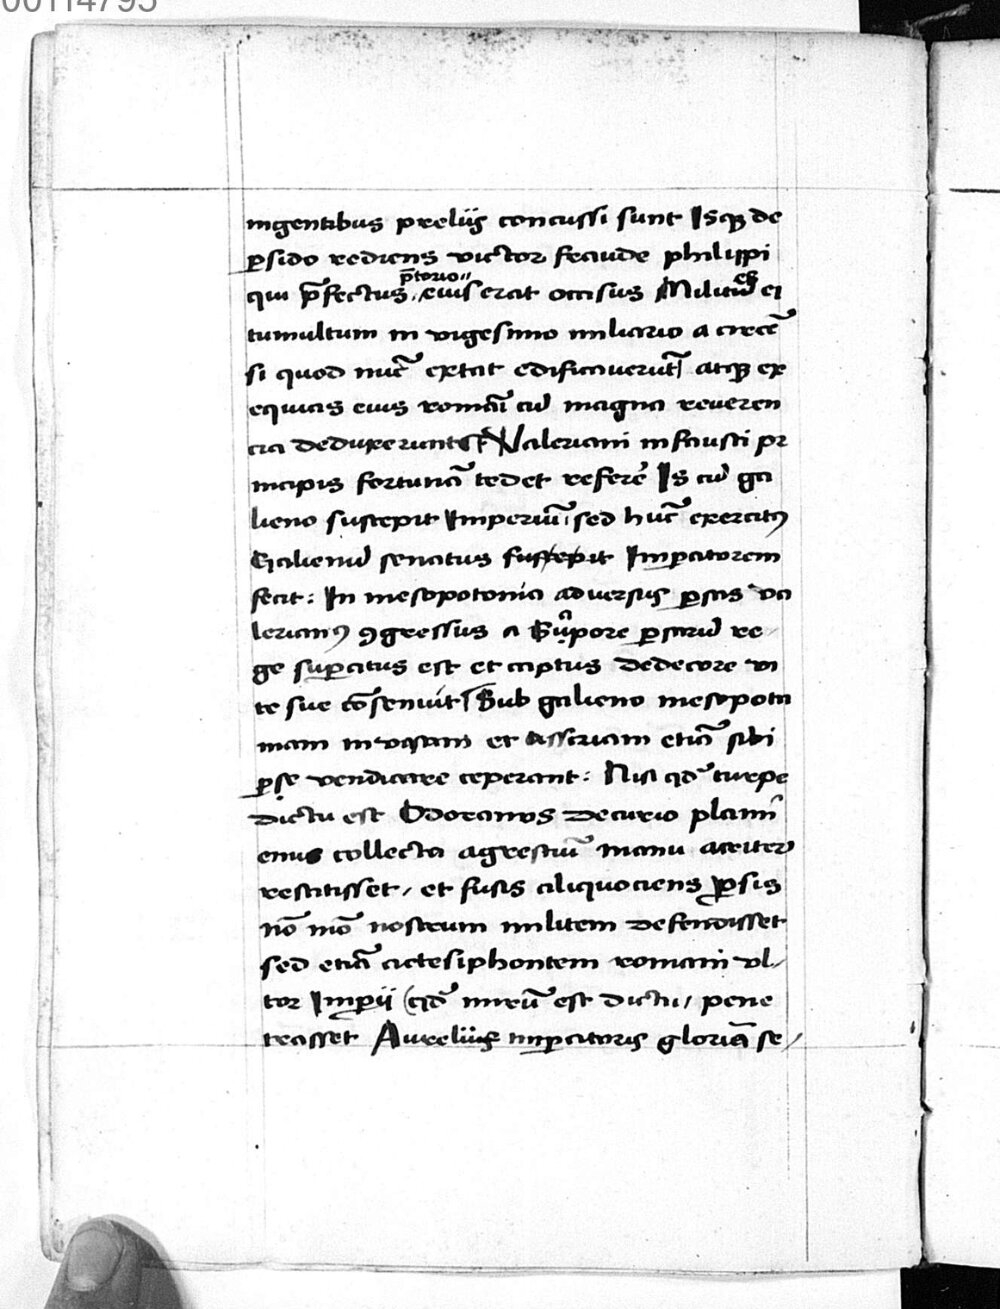 00114795
ingentibus preliis concussi sunt Isq3 de
p̱sido rediens victor fraude philippi
qui p̄fectus p̄torio eius erat occisus Militū ei
tumultum in vigesimo miliario a circē
si quod nuc̄ extat edificaverut̄ atq3 ex
equias eius romā cū magna reveren
cia deduxerunt Valeriani infausti pr
incipis fortunā tedet referē Is cū ga
lieno suscepit Imperiū sed huc̄ exercitꝰ
Galienū senatus Impatorem
fecit: In mesopotomia adversus p̱sas va
lerianꝰ ꝯgressus a Sapore p̱sarū re
ge sup̱atus est et captus dedecore vi
te sue cōsenuit Sub galieno mesopota
miam invasam et Assiriam etiā sibi
p̱se vendicare ceperant: Nisi qd̄ turpe
dictu est decurio
collecta agrestiū manu acriter
restitisset, et fusis aliquociens p̱sis
nō mō nostrum militem defendisset
sed etiā actesiphontem romani vl
tor Imp̱ii (qd̄ mirū est dictu, pene
trasset Aurelius imp̱atoris gloriā se